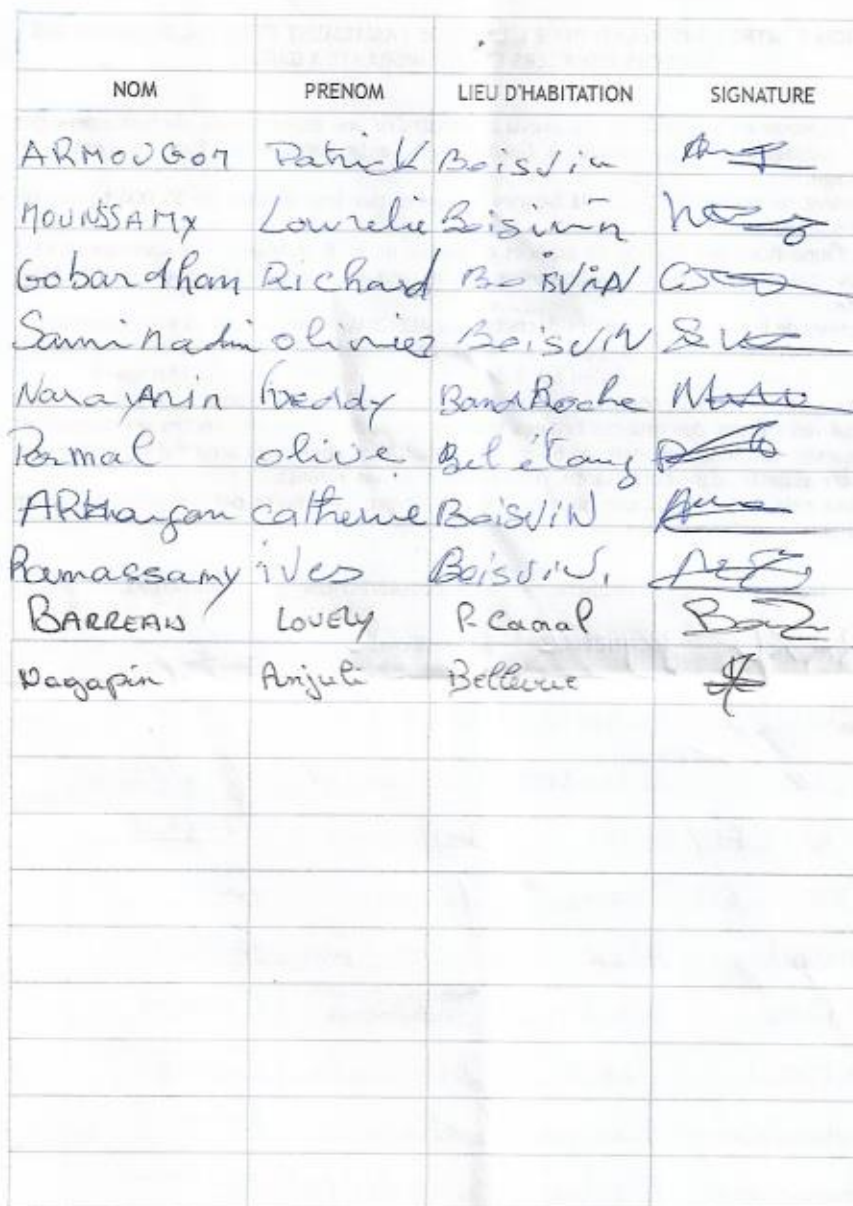 NOM PRENOM LIEU D'HABITATION SIGNATURE
ARMOUGOM Patrick Boisvin
MOUNSSAMY Lourelie Boisvin
Gobardham Richard BOISVIN
Saminadin olivier BoisVIN
NarayAnin freddy Band Roche
Permal olive Bel étang
ARmougom catherine BoisVIN
Ramassamy ives Boisvin
BARREAU LOVELY P. Canal
Nagapin Anjuli Bellevue